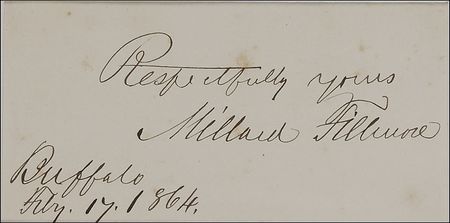 Respectfully yours
Millard Fillmore
Buffalo
Feby. 17. 1864.